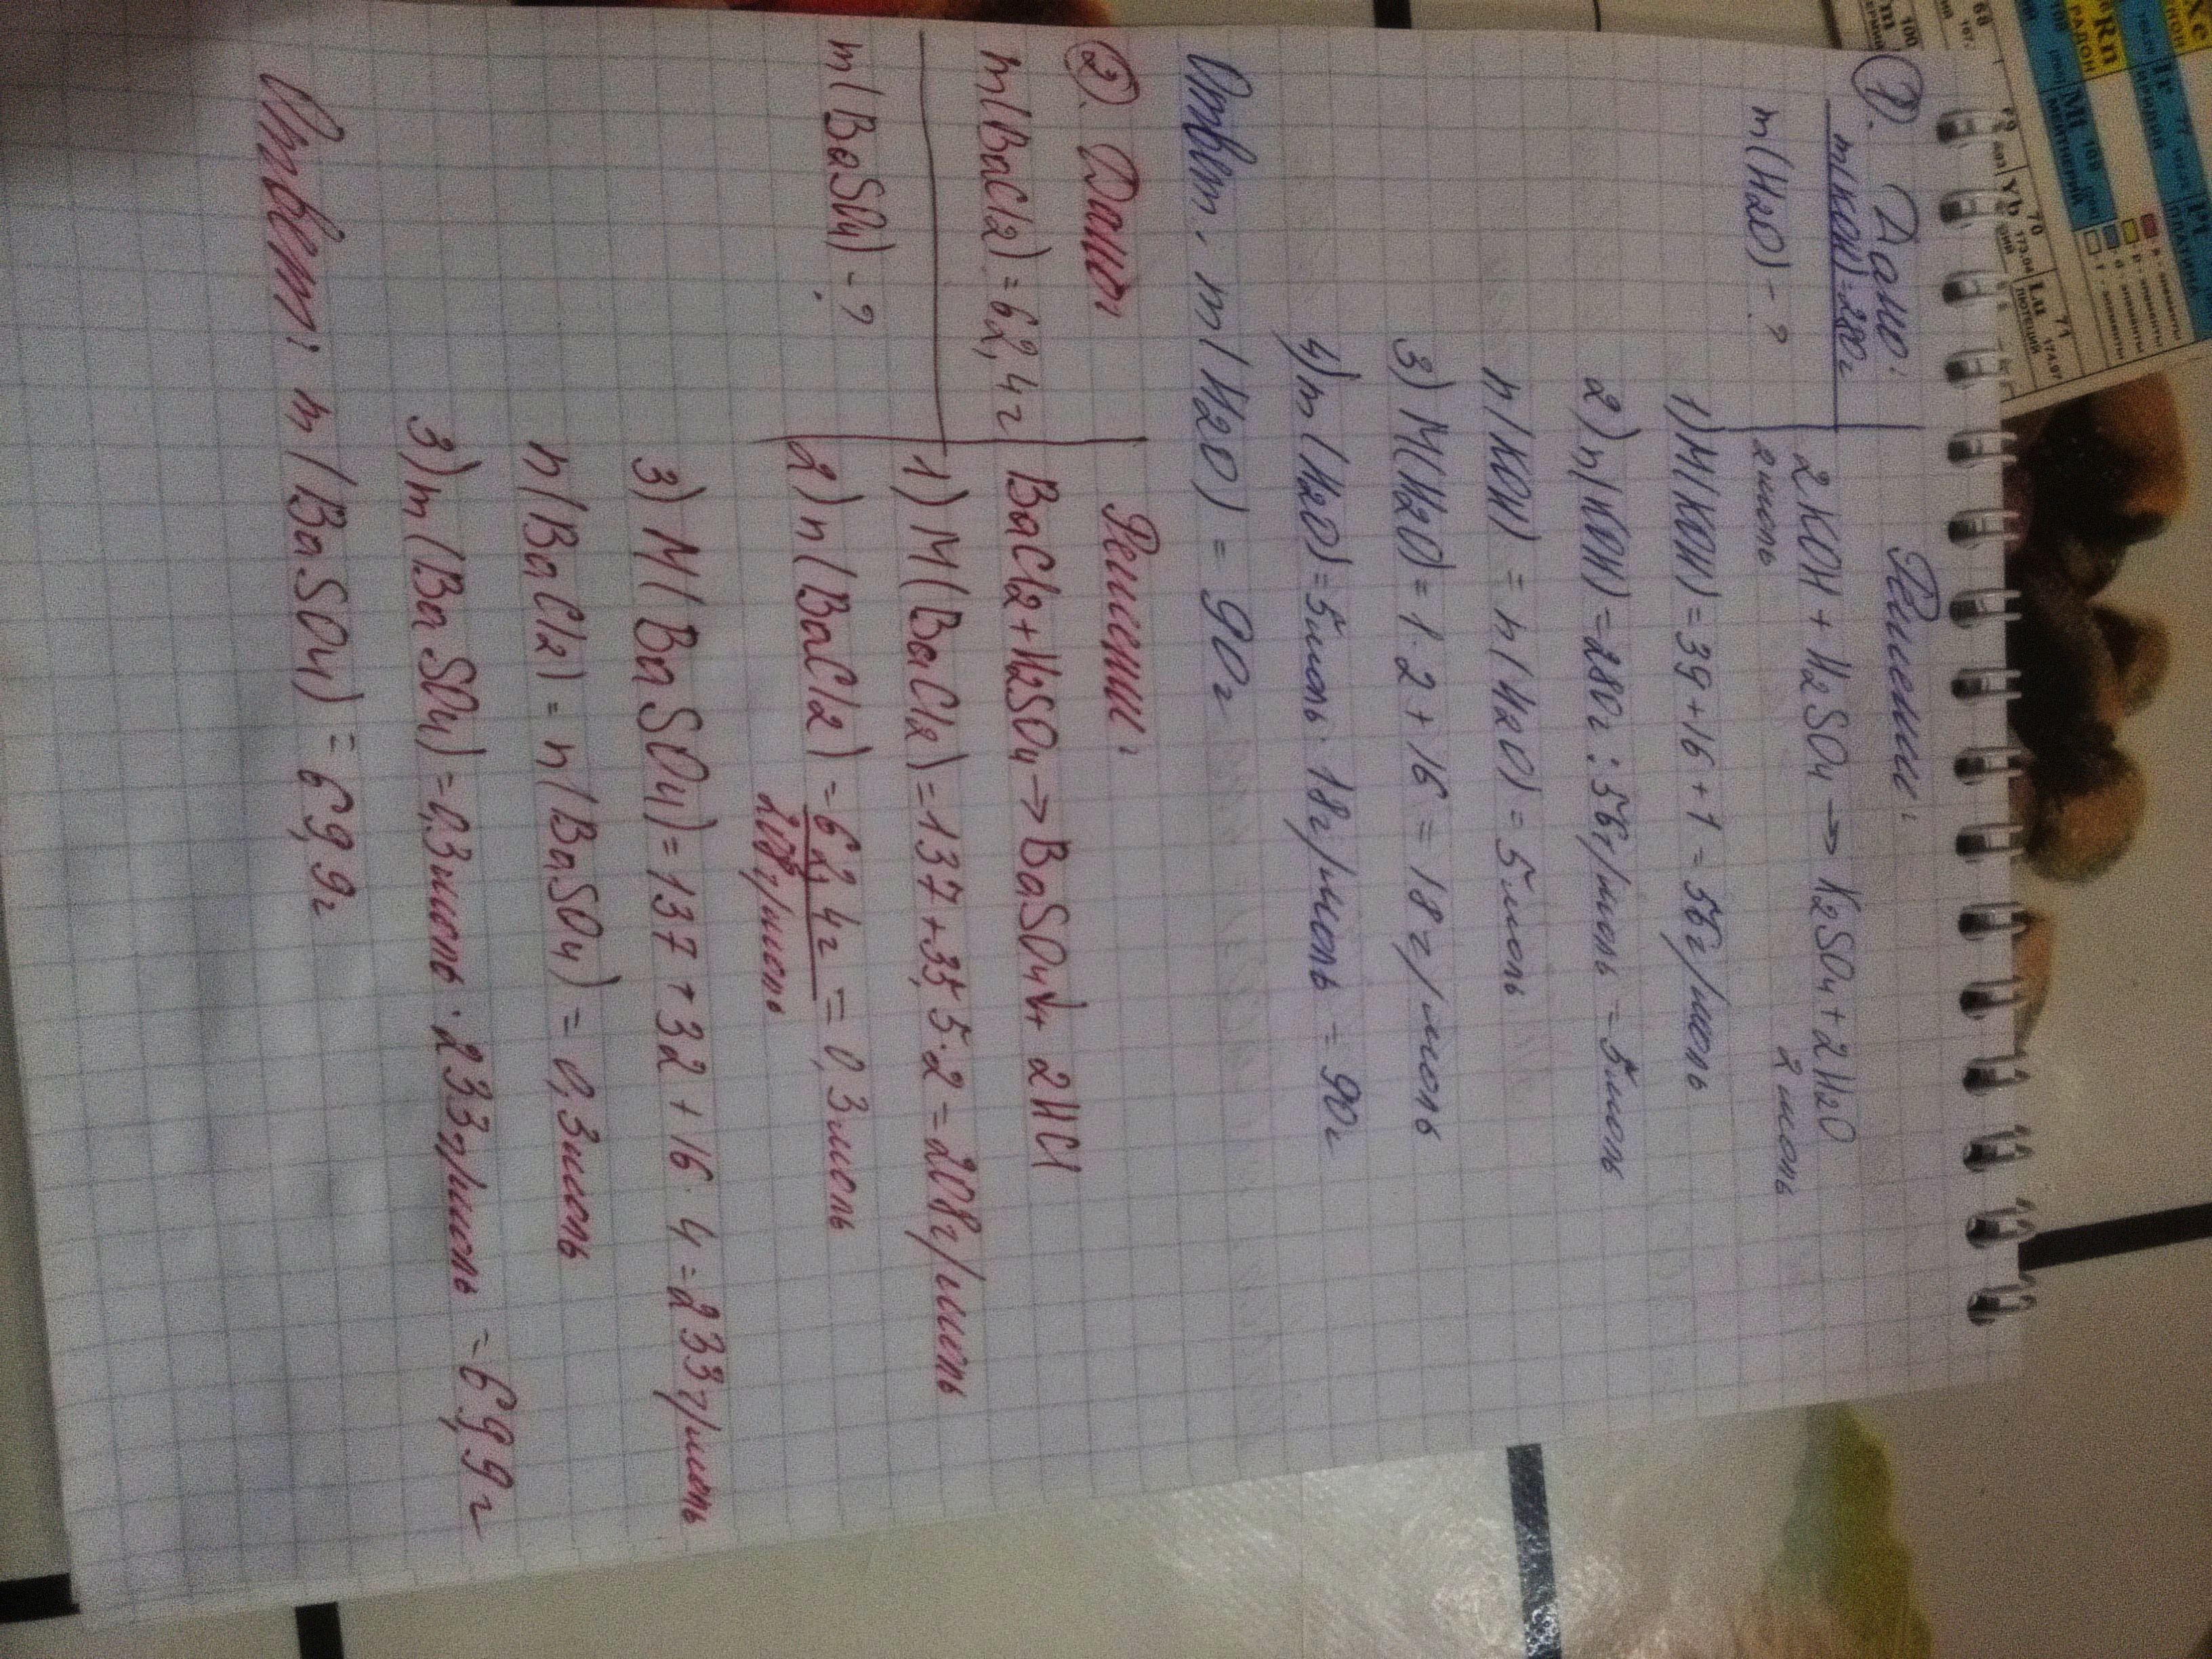 ①. Дано:
m(KOH)=280г
m(H2O)-?
Решени:
2KOH + H2SO4 → K2SO4 + 2H2O
2моль 2 моль
1) M(KOH) = 39 + 16 + 1 = 56г/моль
2) n(KOH) = 280г : 56г/моль = 5моль
n(KOH) = n(H2O) = 5моль
3) M(H2O) = 1·2 + 16 = 18г/моль
4) m(H2O) = 5моль · 18г/моль = 90г
Ответ: m(H2O) = 90г
②. Дано:
m(BaCl2) = 62,4г
m(BaSO4) - ?
Решени:
BaCl2 + H2SO4 → BaSO4↓ + 2HCl
1) M(BaCl2) = 137 + 35,5·2 = 208г/моль
2) n(BaCl2) = 62,4г = 0,3моль
208г/моль
3) M(BaSO4) = 137 + 32 + 16·4 = 233г/моль
n(BaCl2) = n(BaSO4) = 0,3моль
3) m(BaSO4) = 0,3моль · 233г/моль = 69,9г
Ответ: m(BaSO4) = 69,9г
Xe
Rn
РАДОН
Ir
77
ИРИДИЙ
Mt
109
МЕЙТНЕРИЙ
Pt
ПЛАТИНА
68
100
Yb
70
173,04
Lu
71
174,97
ЛЮТЕЦИЙ
s - элементы
p - элементы
d - элементы
f - элементы